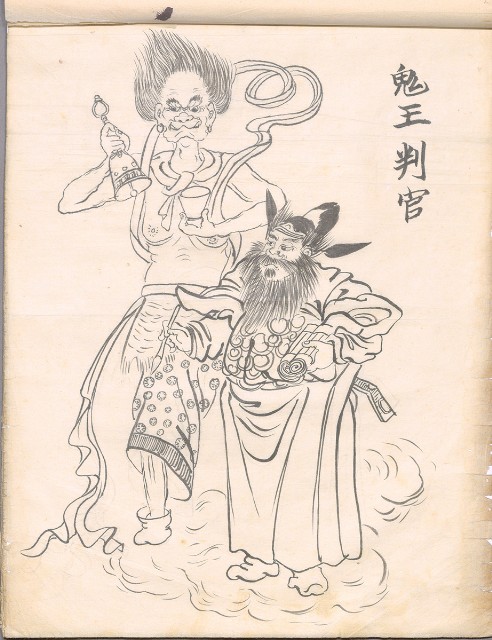 鬼王判官